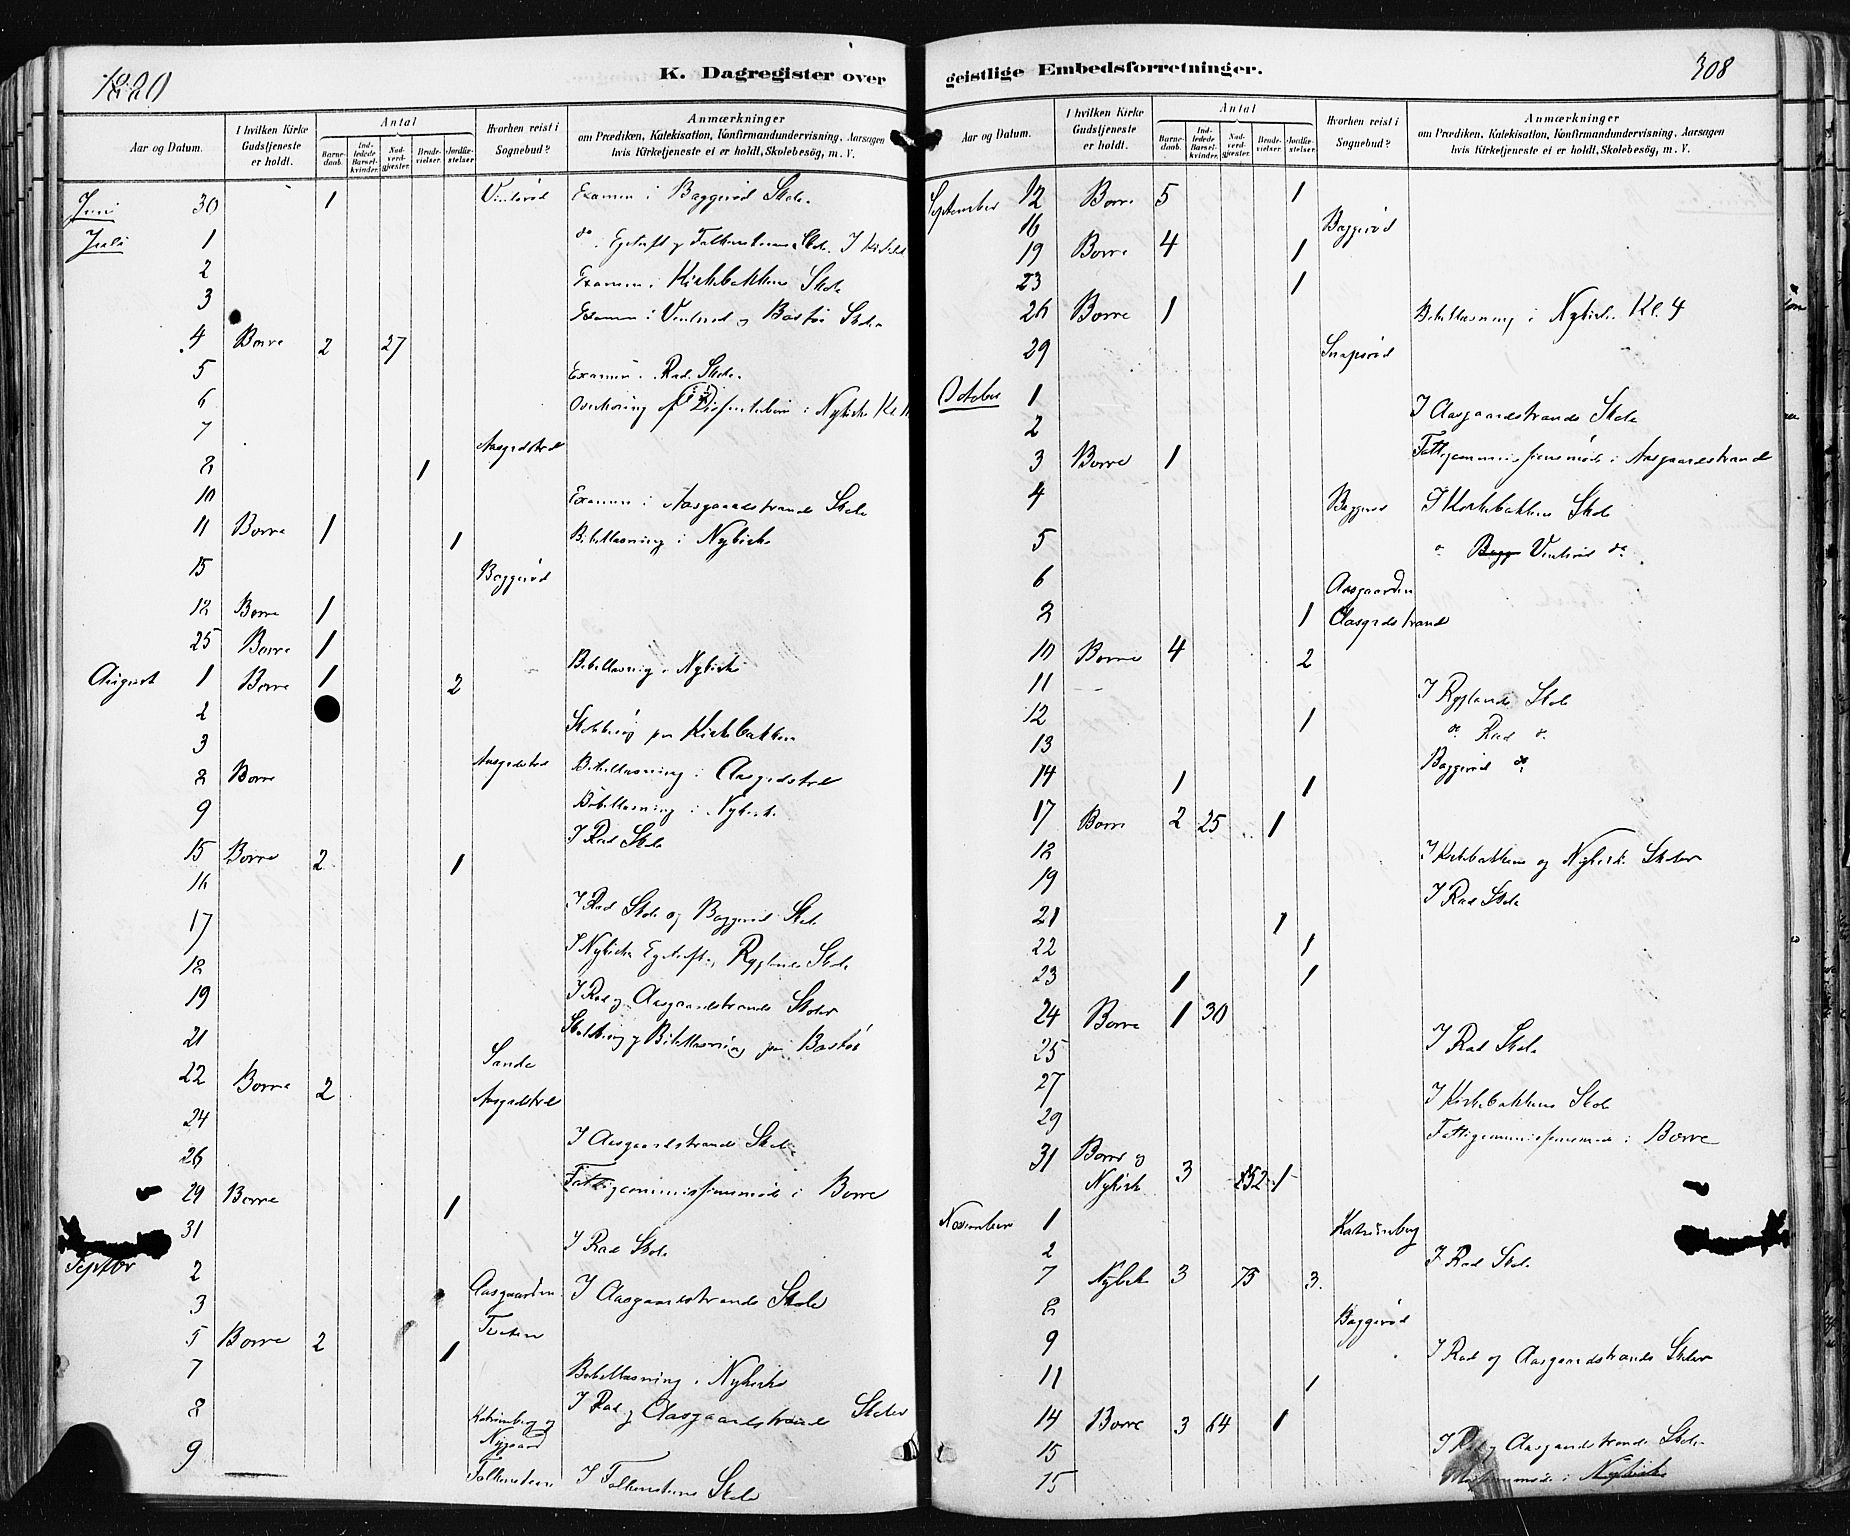 1880
K. Dagregister over
Aar og Datum.
I hvilken Kirke Gudstjeneste er holdt.
Antal
Barnedaab.
Indledede Barselkvinder.
Nadverdgjester.
Brudevielser.
Jordfæstelser.
Hvorhen reist i Sognebud?
Anmærkninger
om Prædiken, Katekisation, Konfirmandundervisning, Aarsagen
hvis Kirketjeneste ei er holdt, Skolebesøg, m. V.
Juni 30 1 Vinterød Examen i Baggerød Skole
Juli 1 do. Egetuft og Falkensteens Skole.
2 Examen i Kirkebakkens Skole
3 Examen i Vinterød og Bastø Skole
4 Borre 2 27
5 Examen i Rød Skole
6 Overhøring af i Nykirke
7 Aasgrdstrd
8 1
10 Examen i Aasgaardstrands Skole
11 Borre 1 1 Bibellæsning i Nykirke
15 Baggerød
18 Borre 1
25 Borre 1
August 1 Borre 1 2 Bibellæsning i Nykirke
2
3 paa Kirkebakken
8 Borre Aasgrdstrd Bibellæsning i Aasgrdstrd
9 Bibellæsning i Nykirke
15 Borre 2 1 I Rød Skole
16
17 I Rød Skole og Baggerød Skole
18 I Nykirke Egetuft og Ryglands Skole
19 I Rød og Aasgaardstrands Skoler
21 og Bibellæsning paa Bastø
22 Borre 2 Sande
24 Aasgrdstrd
26 I Aasgaardstrands Skole
29 Borre 1 Fattigcommissionsmøde i Borre
31 I Rød Skole
Septbr 2
3 Aasgaarden I Aasgaardstrands Skole
5 Borre 2 1
7 Bibellæsning i Nykirke
8 Katrineberg og Nygaard I Rød og Aasgaardstrands Skoler
9 Falkensteen I Falkensteens Skole
geistlige Embedsforretninger.
308
Aar og Datum.
I hvilken Kirke Gudstjeneste er holdt.
Antal
Barnedaab.
Indledede Barselkvinder.
Nadverdgjester.
Brudevielser.
Jordfæstelser.
Hvorhen reist i Sognebud?
Anmærkninger
om Prædiken, Katekisation, Konfirmandundervisning, Aarsagen
hvis Kirketjeneste ei er holdt, Skolebesøg, m. V.
September 12 Borre 5 1
16 Baggerød
19 Borre 4 1
23 1
26 Borre 1 Bibellæsning i Nykirke Kl. 4
29 Snapsrød
October 1 I Aasgaardstrands Skole
2
3 Borre 1 Fattigcommissionsmøde i Aasgaardstrand
4 Baggerød I Kirkebakkens Skole
5 Vinterød do
6 Aasgaarden
8 1 Aasgrdstrand
10 Borre 4 2
11 I Ryglands Skole
12 1 do Rød do
13 Baggerød do
14 1 1
17 Borre 2 25 1
18 I Kirkebakkens og Nykirke Skoler
19 I Rød Skole
21 1
22 1
23 1 1
24 Borre 1 30
25 I Rød Skole
27 I Kirkebakkens Skole
29 Fattigcommissionsmøde i Borre
31 Borre og Nykirke 3 152 1
November 1 Katrineberg
2 I Rød Skole
7 Nykirke 3 75 3
8 Baggerød
9 I Rød og Aasgaardstrands Skoler
11 1
14 Borre 3 64 1
15 I Rød og Aasgaardstrands Skole
15 i Nykirke